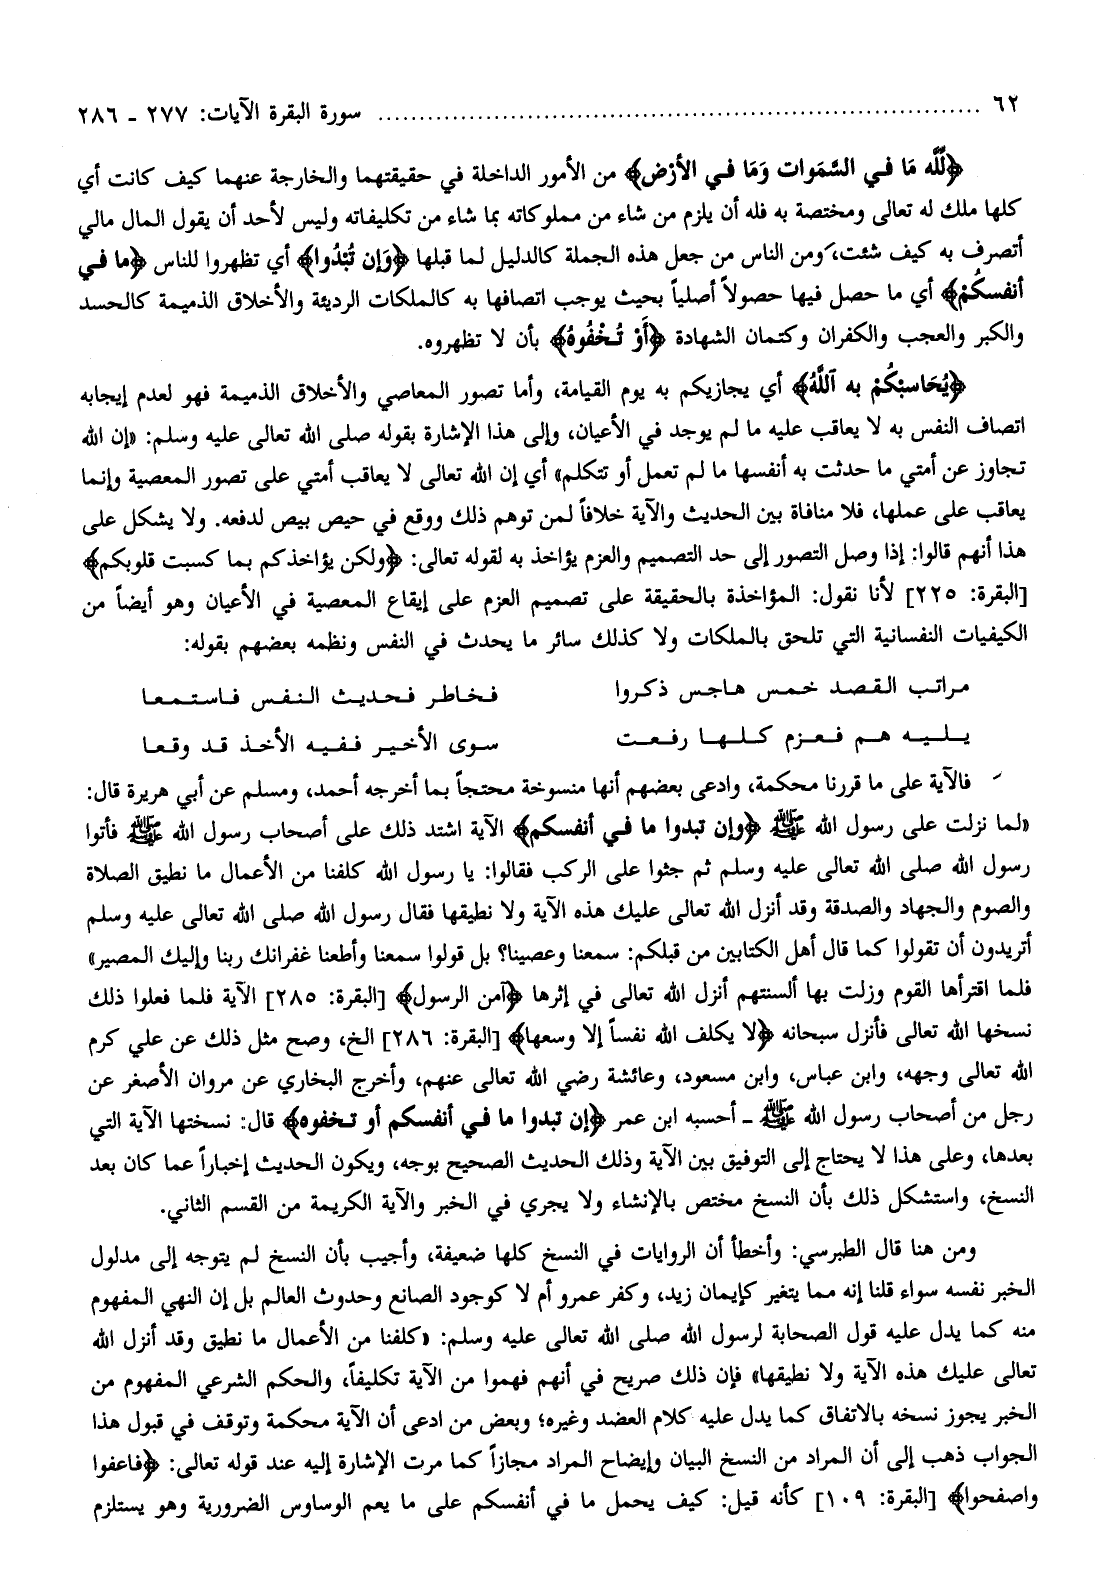 ٦٢ ........................................................................ سورة البقرة الآيات: ٢٧٧ ـ ٢٨٦
﴿لّلَّه مَا في السَّمَوات وَمَا في الأرْض﴾ من الأمور الداخلة في حقيقتهما والخارجة عنهما كيف كانت أي
كلها ملك له تعالى ومختصة به فله أن يلزم من شاء من مملوكاته بما شاء من تكليفاته وليس لأحد أن يقول المال مالي
أتصرف به كيف شئت، ومن الناس من جعل هذه الجملة كالدليل لما قبلها ﴿وَإن تُبْدُوا﴾ أي تظهروا للناس ﴿ما في
أنفسكُمْ﴾ أي ما حصل فيها حصولاً أصلياً بحيث يوجب اتصافها به كالملكات الرديئة والأخلاق الذميمة كالحسد
والكبر والعجب والكفران وكتمان الشهادة ﴿أَوْ تُخْفُوهُ﴾ بأن لا تظهروه.
﴿يُحَاسبْكُمْ به ٱللَّهُ﴾ أي يجازيكم به يوم القيامة، وأما تصور المعاصي والأخلاق الذميمة فهو لعدم إيجابه
اتصاف النفس به لا يعاقب عليه ما لم يوجد في الأعيان، وإلى هذا الإشارة بقوله صلى الله تعالى عليه وسلم: «إن الله
تجاوز عن أمتي ما حدثت به أنفسها ما لم تعمل أو تتكلم» أي إن الله تعالى لا يعاقب أمتي على تصور المعصية وإنما
يعاقب على عملها، فلا منافاة بين الحديث والآية خلافاً لمن توهم ذلك ووقع في حيص بيص لدفعه. ولا يشكل على
هذا أنهم قالوا: إذا وصل التصور إلى حد التصميم والعزم يؤاخذ به لقوله تعالى: ﴿ولكن يؤاخذكم بما كسبت قلوبكم﴾
[البقرة: ٢٢٥] لأنا نقول: المؤاخذة بالحقيقة على تصميم العزم على إيقاع المعصية في الأعيان وهو أيضاً من
الكيفيات النفسانية التي تلحق بالملكات ولا كذلك سائر ما يحدث في النفس ونظمه بعضهم بقوله:
مراتب القصد خمس هاجس ذكروا فخاطر فحديث النفس فاستمعا
يليه هم فعزم كلها رفعت سوى الأخير ففيه الأخذ قد وقعا
فالآية على ما قررنا محكمة، وادعى بعضهم أنها منسوخة محتجاً بما أخرجه أحمد، ومسلم عن أبي هريرة قال:
«لما نزلت على رسول الله ﷺ ﴿وإن تبدوا ما في أنفسكم﴾ الآية اشتد ذلك على أصحاب رسول الله ﷺ فأتوا
رسول الله صلى الله تعالى عليه وسلم ثم جثوا على الركب فقالوا: يا رسول الله كلفنا من الأعمال ما نطيق الصلاة
والصوم والجهاد والصدقة وقد أنزل الله تعالى عليك هذه الآية ولا نطيقها فقال رسول الله صلى الله تعالى عليه وسلم
أتريدون أن تقولوا كما قال أهل الكتابين من قبلكم: سمعنا وعصينا؟ بل قولوا سمعنا وأطعنا غفرانك ربنا وإليك المصير»
فلما اقترأها القوم وزلت بها ألسنتهم أنزل الله تعالى في إثرها ﴿آمن الرسول﴾ [البقرة: ٢٨٥] الآية فلما فعلوا ذلك
نسخها الله تعالى فأنزل سبحانه ﴿لا يكلف الله نفساً إلا وسعها﴾ [البقرة: ٢٨٦] الخ، وصح مثل ذلك عن علي كرم
الله تعالى وجهه، وابن عباس، وابن مسعود، وعائشة رضي الله تعالى عنهم، وأخرج البخاري عن مروان الأصغر عن
رجل من أصحاب رسول الله ﷺ ـ أحسبه ابن عمر ﴿إن تبدوا ما في أنفسكم أو تخفوه﴾ قال: نسختها الآية التي
بعدها، وعلى هذا لا يحتاج إلى التوفيق بين الآية وذلك الحديث الصحيح بوجه، ويكون الحديث إخباراً عما كان بعد
النسخ، واستشكل ذلك بأن النسخ مختص بالإنشاء ولا يجري في الخبر والآية الكريمة من القسم الثاني.
ومن هنا قال الطبرسي: وأخطأ أن الروايات في النسخ كلها ضعيفة، وأجيب بأن النسخ لم يتوجه إلى مدلول
الخبر نفسه سواء قلنا إنه مما يتغير كإيمان زيد، وكفر عمرو أم لا كوجود الصانع وحدوث العالم بل إن النهي المفهوم
منه كما يدل عليه قول الصحابة لرسول الله صلى الله تعالى عليه وسلم: «كلفنا من الأعمال ما نطيق وقد أنزل الله
تعالى عليك هذه الآية ولا نطيقها» فإن ذلك صريح في أنهم فهموا من الآية تكليفاً، والحكم الشرعي المفهوم من
الخبر يجوز نسخه بالاتفاق كما يدل عليه كلام العضد وغيره؛ وبعض من ادعى أن الآية محكمة وتوقف في قبول هذا
الجواب ذهب إلى أن المراد من النسخ البيان وإيضاح المراد مجازاً كما مرت الإشارة إليه عند قوله تعالى: ﴿فاعفوا
واصفحوا﴾ [البقرة: ١٠٩] كأنه قيل: كيف يحمل ما في أنفسكم على ما يعم الوساوس الضرورية وهو يستلزم